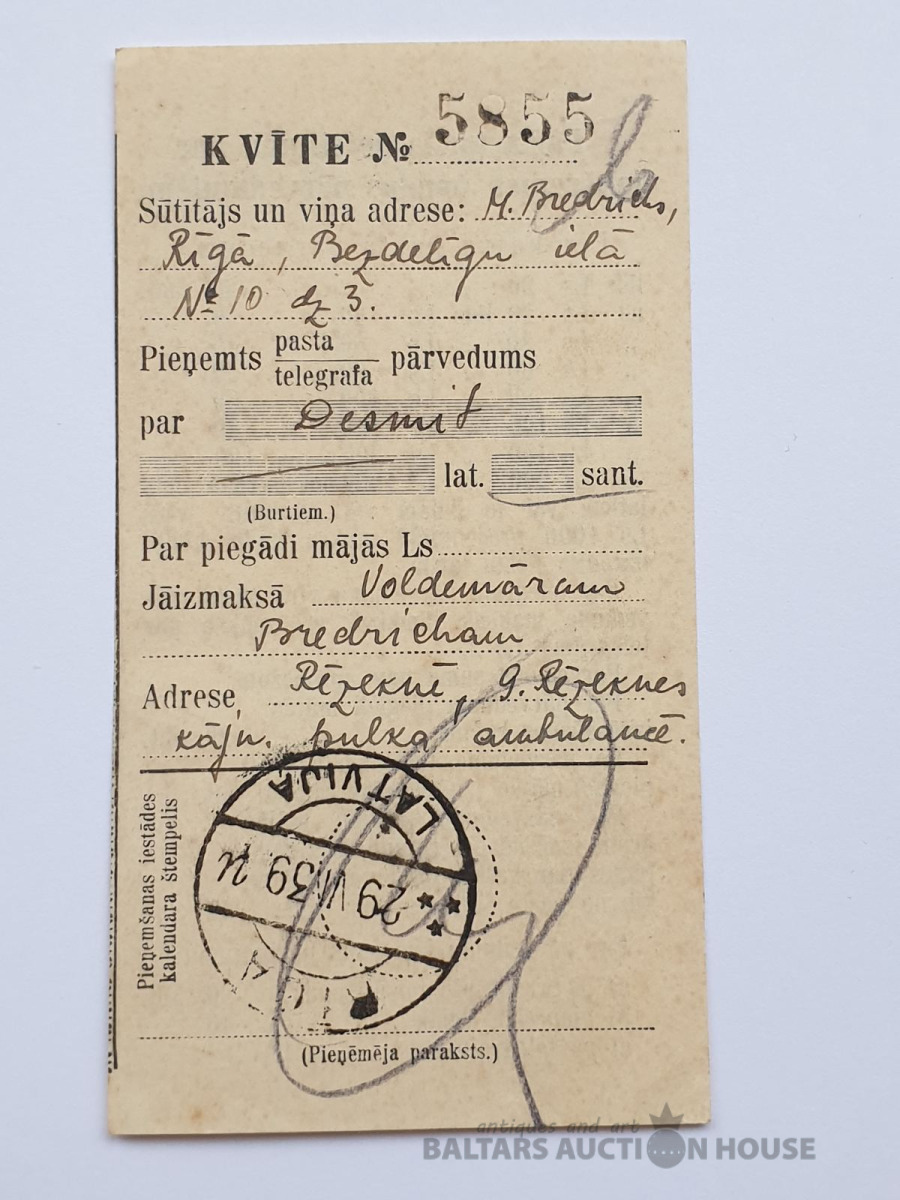 KVĪTE № 5855
Sūtītājs un viņa adrese: M. Bredrichs,
Rīgā, Bezdelīgu ielā
№ 10 dz 3.
Pieņemts pasta
telegrafa pārvedums
par Desmit
lat. sant.
(Burtiem.)
Par piegādi mājās Ls
Jāizmaksā Voldemāram
Bredricham
Adrese, Rēzeknē, 9. Rēzeknes
kājn. pulka ambulancē.
Pieņemšanas iestādes
kalendara štempelis
LATVIJA
29 VI 39
RIGA
(Pieņēmēja paraksts.)
antiques and art
BALTARS AUCTION HOUSE